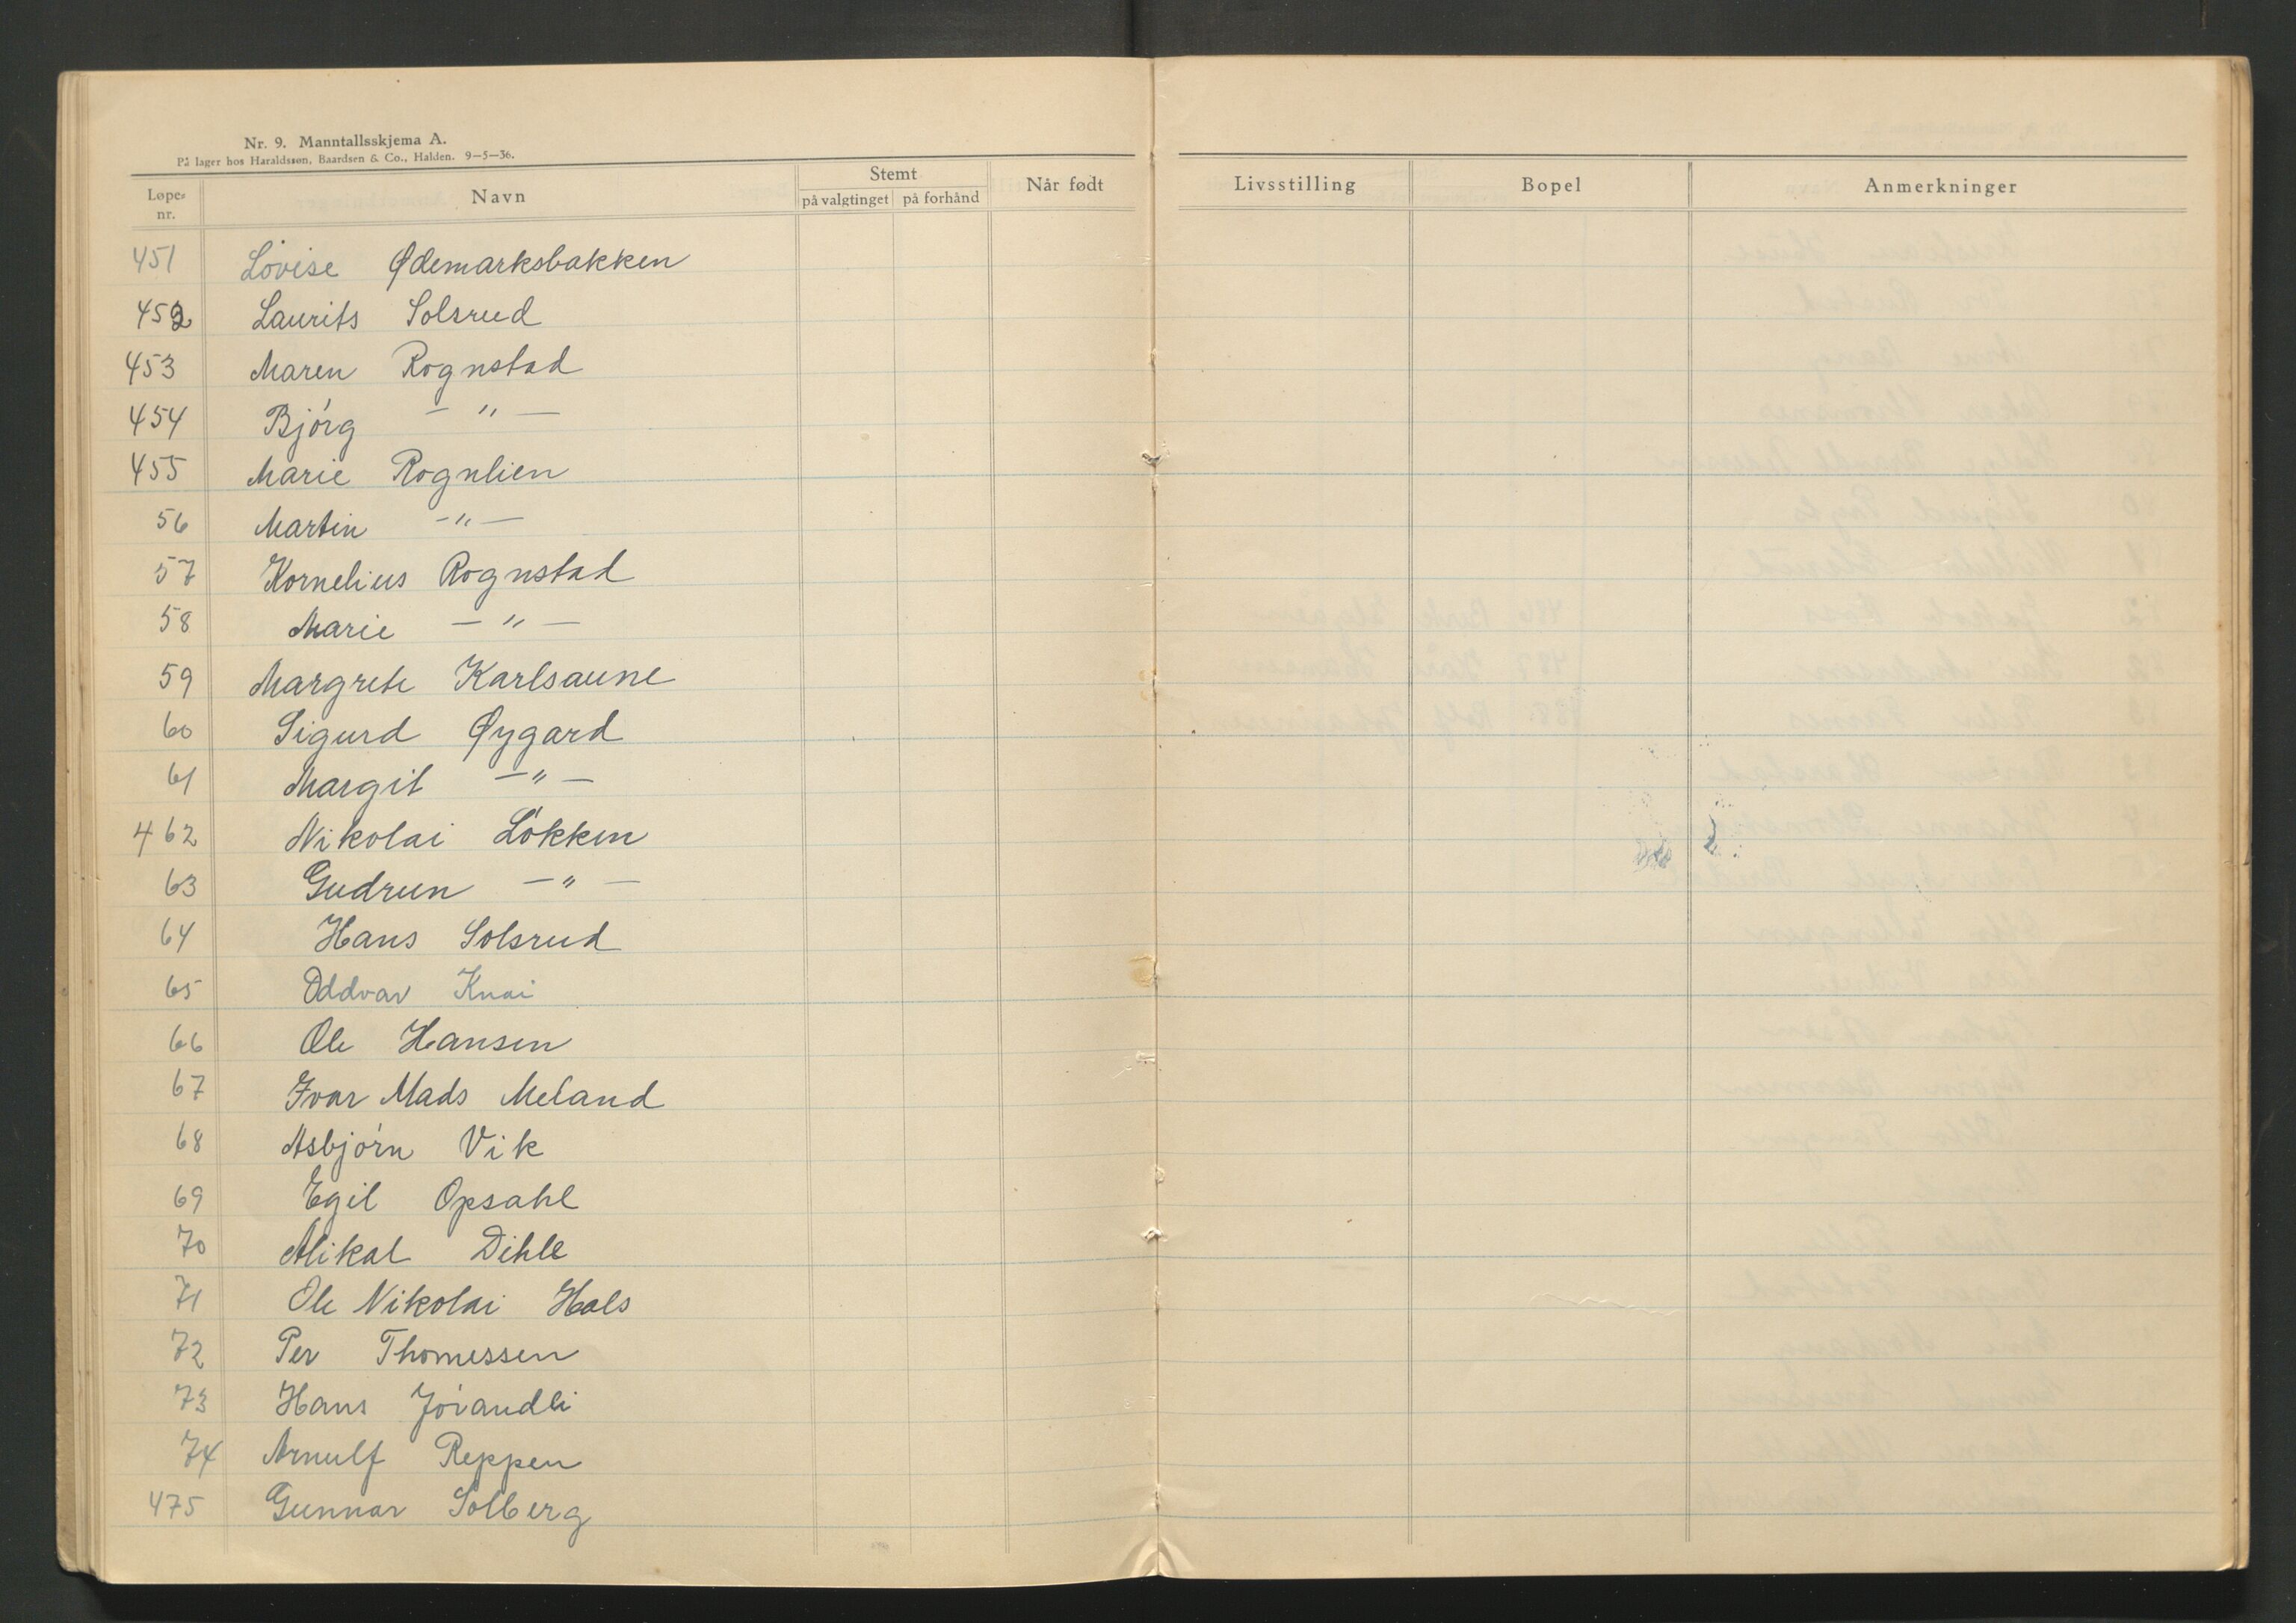 Nr. 9. Manntallsskjema A.
På lager hos Haraldssøn, Baardsen & Co., Halden. 9—5—36.
Løpe-nr. Navn Stemt på valgtinget på forhånd Når født Livsstilling Bopel Anmerkninger
451 Lovise Ødemarksbakken
452 Laurits Solsrud
453 Maren Rognstad
454 Bjórg — " —
455 Marie Rognlien
56 Martin — " —
57 Kornelius Rognstad
58 Marie — " —
59 Margrete Karlsaune
60 Sigurd Øygard
61 Margit — " —
462 Nikolai Lókken
63 Gudrun — " —
64 Hans Solsrud
65 Oddvar Knai
66 Ole Hansen
67 Ivar Mads Meland
68 Asbjórn Vik
69 Egil Opsahl
70 Mikal Dihle
71 Ole Nikolai Hals
72 Per Thomessen
73 Hans Jórandli
74 Arnulf Reppen
475 Gunnar Solberg